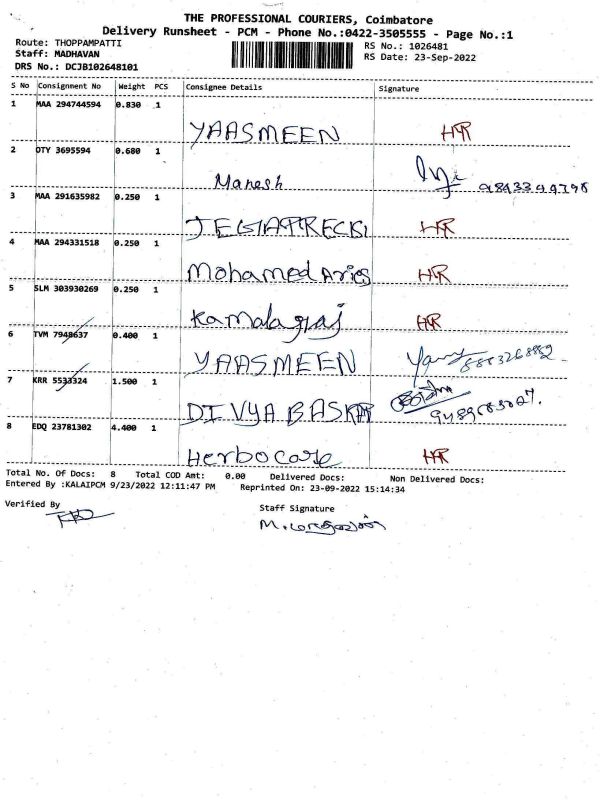 THE PROFESSIONAL COURIERS, Coimbatore
Delivery Runsheet - PCM - Phone No.:0422-3505555 - Page No.:1
Route: THOPPAMPATTI
RS No.: 1026481
Staff: MADHAVAN
RS Date: 23-Sep-2022
DRS No.: DCJB102648101
S No Consignment No Weight PCS Consignee Details Signature
1 MAA 294744594 0.830 1
YAASMEEN HR
2 OTY 3695594 0.680 1
Manesh
3 MAA 291635982 0.250 1
HR
4 MAA 294331518 0.250 1
Mohamed Aries HR
5 SLM 303930269 0.250 1
Kamalaraj HR
6 TVM 7948637 0.400 1
YAASMEEN
7 KRR 5533324 1.500 1
DIVYA BASKAR
8 EDQ 23781302 4.400 1
Herbocare HR
Total No. Of Docs: 8 Total COD Amt: 0.00 Delivered Docs: Non Delivered Docs:
Entered By :KALAIPCM 9/23/2022 12:11:47 PM Reprinted On: 23-09-2022 15:14:34
Verified By
Staff Signature